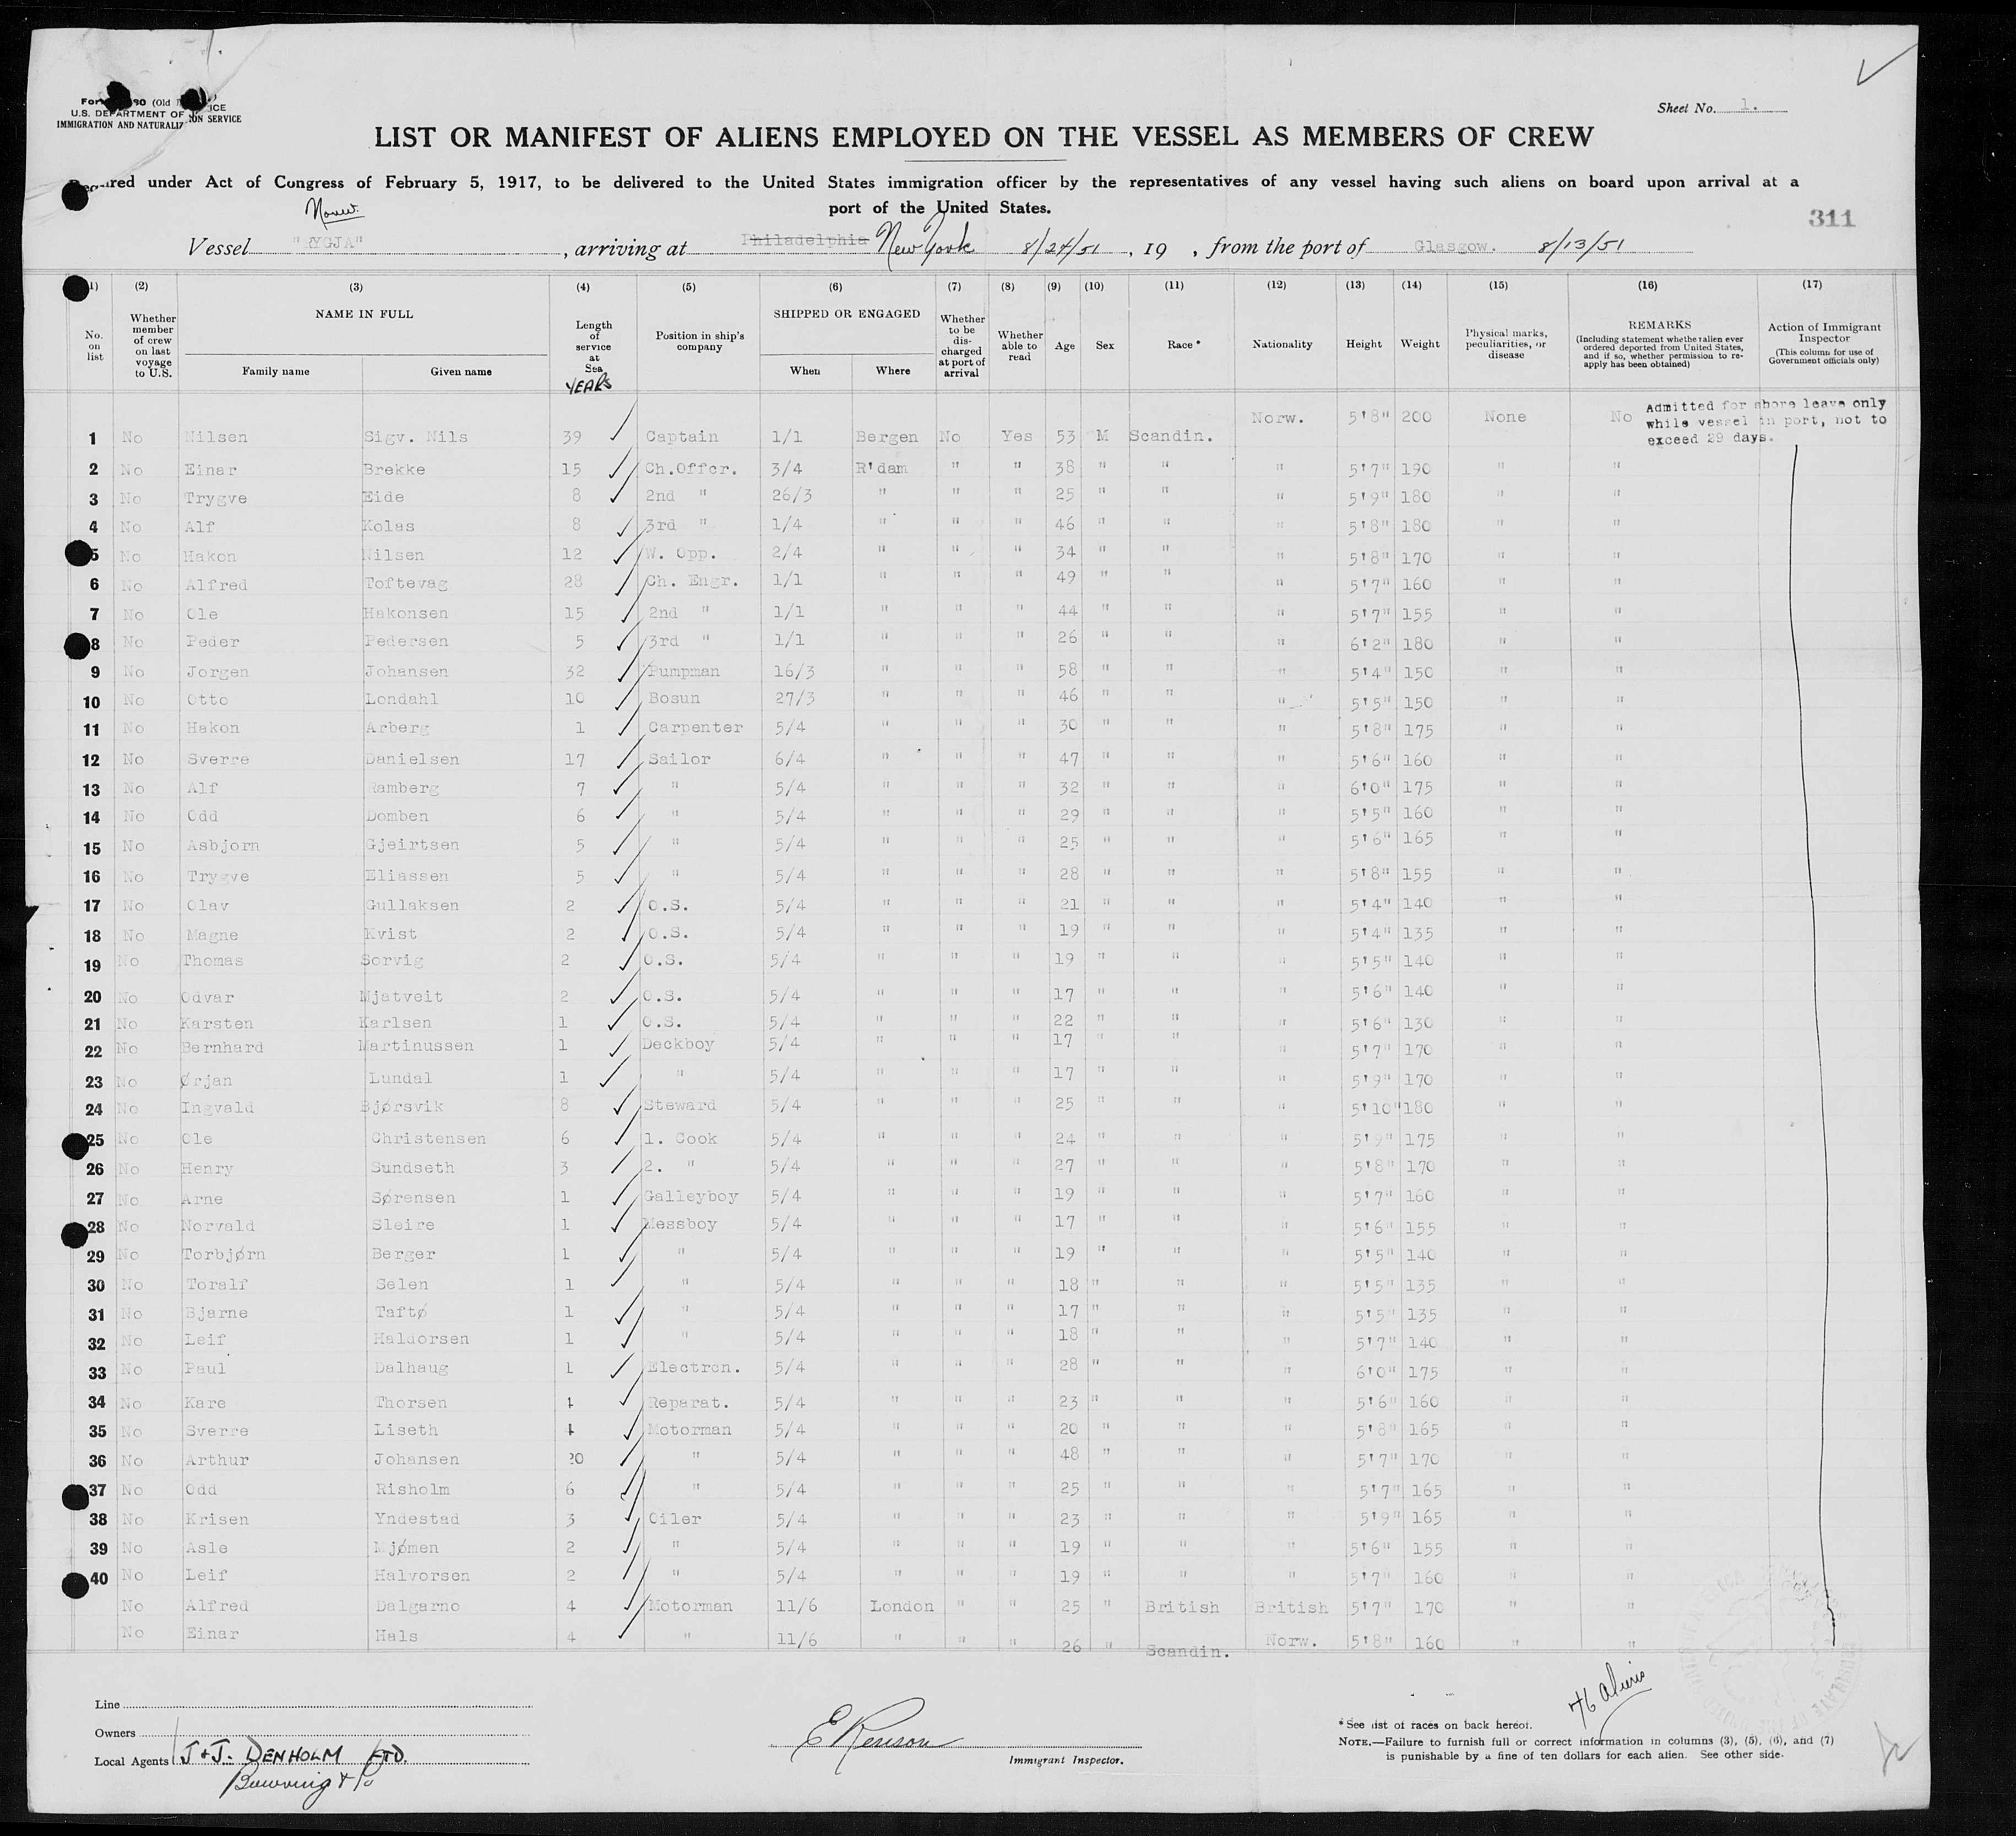 Sheet No. 1.
U.S. DEPARTMENT OF
IMMIGRATION AND NATURALIZ ION SERVICE
LIST OR MANIFEST OF ALIENS EMPLOYED ON THE VESSEL AS MEMBERS OF CREW
Required under Act of Congress of February 5, 1917, to be delivered to the United States immigration officer by the representatives of any vessel having such aliens on board upon arrival at a
port of the United States.
311
Vessel "RYGJA" , arriving at Philadelphia New York 8/24/51 , 19 , from the port of Glasgow. 8/13/51
(1) (2) (3) (4) (5) (6) (7) (8) (9) (10) (11) (12) (13) (14) (15) (16) (17)
No. on list
Whether member of crew on last voyage to U.S.
NAME IN FULL
Family name Given name
Length of service at Sea YEARS
Position in ship's company
SHIPPED OR ENGAGED
When Where
Whether to be discharged at port of arrival
Whether able to read
Age Sex Race * Nationality Height Weight
Physical marks, peculiarities, or disease
REMARKS
(Including statement whether alien ever ordered deported from United States, and if so, whether permission to reapply has been obtained)
Action of Immigrant Inspector
(This column for use of Government officials only)
1 No Nilsen Sigv. Nils 39 Captain 1/1 Bergen No Yes 53 M Scandin. Norw. 5'8" 200 None No
Admitted for shore leave only
while vessel in port, not to
exceed 29 days.
2 No Einar Brekke 15 Ch.Offcr. 3/4 R'dam " " 38 " " " 5'7" 190 " "
3 No Trygve Eide 8 2nd " 26/3 " " " 25 " " " 5'9" 180 " "
4 No Alf Kolas 8 3rd " 1/4 " " " 46 " " " 5'8" 180 " "
5 No Hakon Nilsen 12 W. Opp. 2/4 " " " 34 " " " 5'8" 170 " "
6 No Alfred Toftevag 28 Ch. Engr. 1/1 " " " 49 " " " 5'7" 160 " "
7 No Ole Hakonsen 15 2nd " 1/1 " " " 44 " " " 5'7" 155 " "
8 No Peder Pedersen 5 3rd " 1/1 " " " 26 " " " 6'2" 180 " "
9 No Jorgen Johansen 32 Pumpman 16/3 " " " 58 " " " 5'4" 150 " "
10 No Otto Londahl 10 Bosun 27/3 " " " 46 " " " 5'5" 150 " "
11 No Hakon Arberg 1 Carpenter 5/4 " " " 30 " " " 5'8" 175 " "
12 No Sverre Danielsen 17 Sailor 6/4 " " " 47 " " " 5'6" 160 " "
13 No Alf Ramberg 7 " 5/4 " " " 32 " " " 6'0" 175 " "
14 No Odd Domben 6 " 5/4 " " " 29 " " " 5'5" 160 " "
15 No Asbjorn Gjeirtsen 5 " 5/4 " " " 25 " " " 5'6" 165 " "
16 No Trygve Eliassen 5 " 5/4 " " " 28 " " " 5'8" 155 " "
17 No Olav Gullaksen 2 O.S. 5/4 " " " 21 " " " 5'4" 140 " "
18 No Magne Kvist 2 O.S. 5/4 " " " 19 " " " 5'4" 135 " "
19 No Thomas Sorvig 2 O.S. 5/4 " " " 19 " " " 5'5" 140 " "
20 No Odvar Mjatveit 2 O.S. 5/4 " " " 17 " " " 5'6" 140 " "
21 No Karsten Karlsen 1 O.S. 5/4 " " " 22 " " " 5'6" 130 " "
22 No Bernhard Martinussen 1 Deckboy 5/4 " " " 17 " " " 5'7" 170 " "
23 No Ørjan Lundal 1 " 5/4 " " " 17 " " " 5'9" 170 " "
24 No Ingvald Bjørsvik 8 Steward 5/4 " " " 25 " " " 5'10" 180 " "
25 No Ole Christensen 6 1. Cook 5/4 " " " 24 " " " 5'9" 175 " "
26 No Henry Sundseth 3 2. " 5/4 " " " 27 " " " 5'8" 170 " "
27 No Arne Sørensen 1 Galleyboy 5/4 " " " 19 " " " 5'7" 160 " "
28 No Norvald Sleire 1 Messboy 5/4 " " " 17 " " " 5'6" 155 " "
29 No Torbjørn Berger 1 " 5/4 " " " 19 " " " 5'5" 140 " "
30 No Toralf Selen 1 " 5/4 " " " 18 " " " 5'5" 135 " "
31 No Bjarne Taftø 1 " 5/4 " " " 17 " " " 5'5" 135 " "
32 No Leif Haldorsen 1 " 5/4 " " " 18 " " " 5'7" 140 " "
33 No Paul Dalhaug 1 Electron. 5/4 " " " 28 " " " 6'0" 175 " "
34 No Kare Thorsen 4 Reparat. 5/4 " " " 23 " " " 5'6" 160 " "
35 No Sverre Liseth 4 Motorman 5/4 " " " 20 " " " 5'8" 165 " "
36 No Arthur Johansen 20 " 5/4 " " " 48 " " " 5'7" 170 " "
37 No Odd Risholm 6 " 5/4 " " " 25 " " " 5'7" 165 " "
38 No Krisen Yndestad 3 Oiler 5/4 " " " 23 " " " 5'9" 165 " "
39 No Asle Mjømen 2 " 5/4 " " " 19 " " " 5'6" 155 " "
40 No Leif Halvorsen 2 " 5/4 " " " 19 " " " 5'7" 160 " "
No Alfred Dalgarno 4 Motorman 11/6 London " " 25 " British British 5'7" 170 " "
No Einar Hals 4 " 11/6 " " " 26 " Scandin. Norw. 5'8" 160 " "
Line
Owners
Local Agents J & J. DENHOLM LTD.
Immigrant Inspector.
46 aliens
*See list of races on back hereof.
NOTE.—Failure to furnish full or correct information in columns (3), (5), (6), and (7)
is punishable by a fine of ten dollars for each alien. See other side.